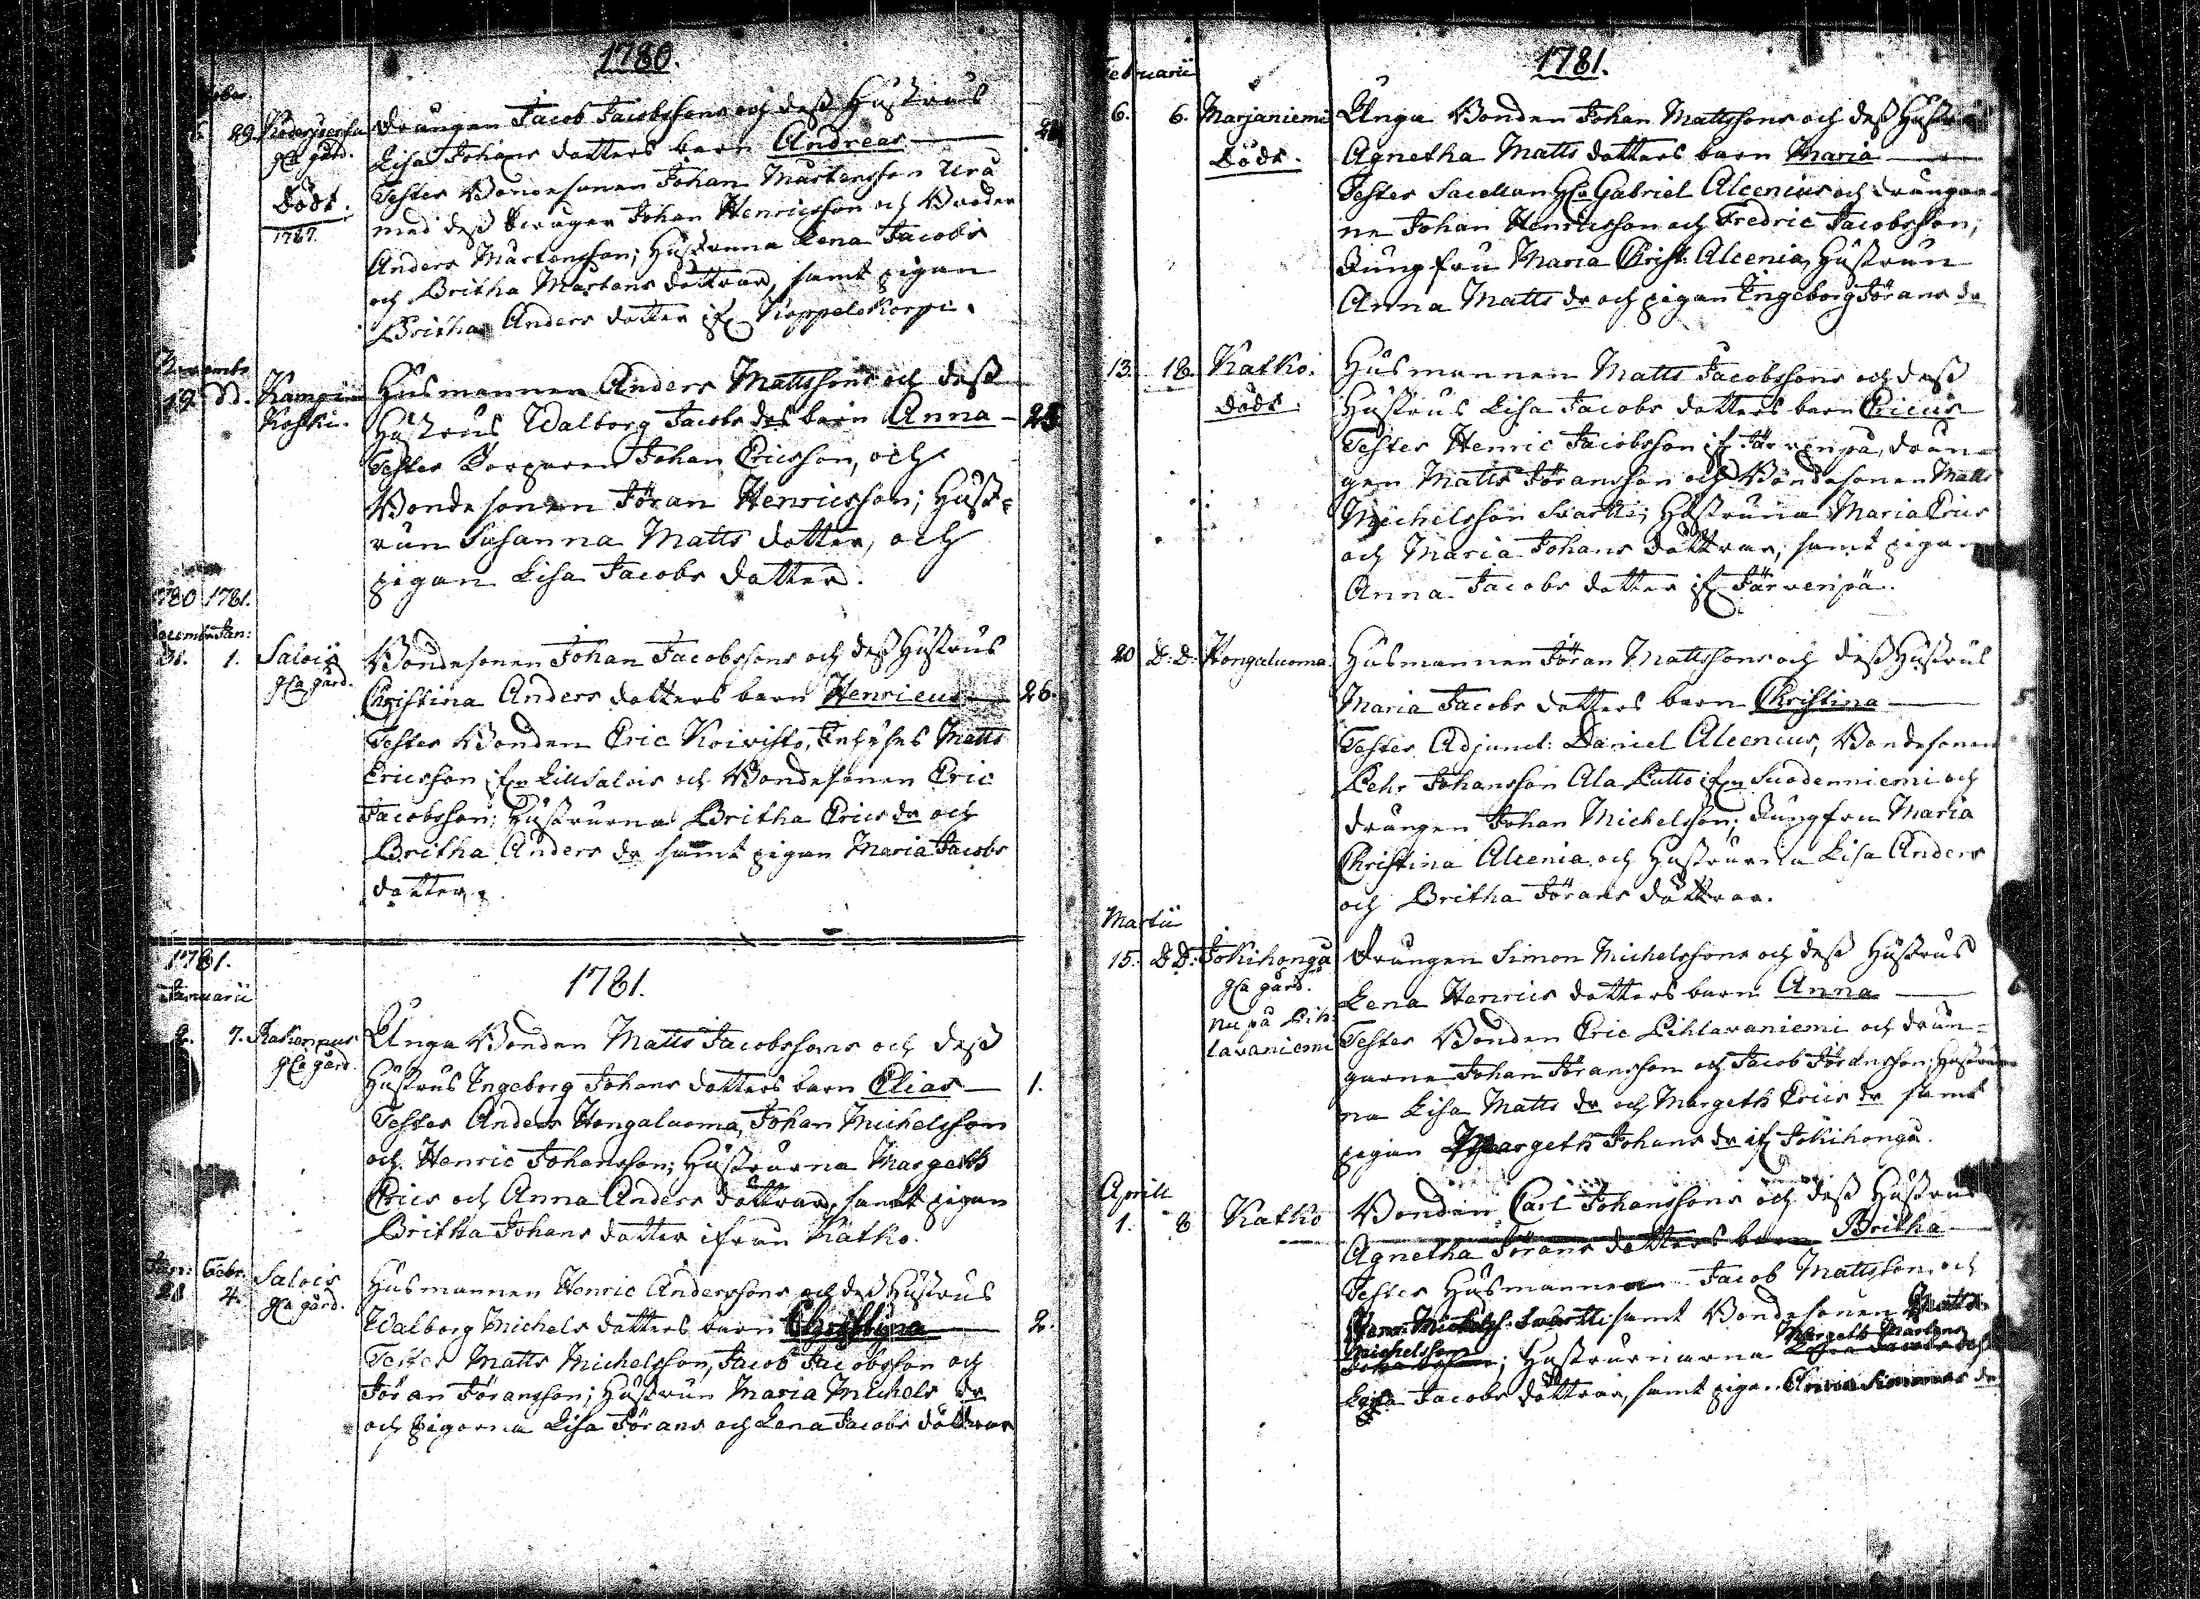 1780.
29. drängen Jacob Jacobssons och dess Hustrus
gla gård. Lisa Johans dotters barn Andreas
Död. Testes Bondesonen Johan Mårtensson Urå
1787. med dess drängar Johan Henricsson och Broder
Anders Mårtensson; Hustrurna Lena Jacobs
och Britha Mårtens döttrar, samt pigan
Britha Anders dotter if. Koppelokorpi.
Novembr
19. dd. Kampin Husmannen Anders Mattssons och dess
Koski. Hustrus Walborg Jacobs des barn Anna 25
Testes Torparen Johan Ericsson, och
Bondesonen Jöran Henricsson; Hust-
run Susanna Matts dotter, och
pigan Lisa Jacobs dotter.
1780 1781.
Decemb Jan:
31. 1. Salois Bondesonen Johan Jacobssons och dess Hustrus
gla gård. Christina Anders dotters barn Henricus 26.
Testes Bonden Eric Koivisto, Matts
Ericsson ifrn Lillsalois och Bondesonen Eric
Jacobsson; Hustrurna Britha Erics dr och
Britha Anders dr samt pigan Maria Jacobs
dotter.
1781.
1781.
Januarii
2. 7. Unga Bonden Matts Jacobssons och dess
gla gård. Hustrus Ingeborg Johans dotters barn Elias 1.
Testes Anders Hongaluoma, Johan Michelsson
och Henric Johansson; Hustrurna Margeth
Erics och Anna Anders döttrar, samt pigan
Britha Johans dotter ifrån Katko.
Jan: Febr.
28 4. Salois Husmannen Henric Anderssons och dess Hustrus
gla gård. Walborg Michels dotters barn Christina 2.
Testes Matts Michelsson, Jacob Jacobsson och
Jöran Jöransson; Hustrun Maria Michels dr
och pigorna Lisa Jörans och Lena Jacobs döttrar
1781.
Februarii
6. 6. Marjaniemi Unga Bonden Johan Mattssons och dess Hustrus
Död. Agnetha Matts dotters barn Maria
Testes Sacellan Hr Gabriel Alcenius och drängar-
ne Johan Henricsson och Fredric Jacobsson;
Jungfru Maria Christ. Alcenia, Hustrun
Anna Matts dr och pigan Ingeborg Jörans dr
13. 18. Katko. Husmannen Matts Jacobssons och dess
Död. Hustrus Lisa Jacobs dotters barn Ericus
Testes Henric Jacobsson if. Järvenpä, drän-
gen Matts Jöransson och Bondesonen Matts
Michelsson Svartti; Hustrurna Maria Erics
och Maria Johans döttrar, samt pigan
Anna Jacobs dotter if. Järvenpä.
20 D:D: Hongaluoma. Husmannen Jöran Mattssons och dess Hustrus
Maria Jacobs dotters barn Christina 5
Testes Adjunct: Daniel Alcenius, Bondesonen
Pehr Johansson Ala Lutto ifrn Suodenniemi och
drängen Johan Michelsson; Jungfru Maria
Christina Alcenia och Hustrurna Lisa Anders
och Britha Jörans döttrar.
Martii
15. D D: Jokihonga drängen Simon Michelssons och dess Hustrus
gla gård. Lena Henrics dotters barn Anna 6
nu på Pih- Testes Bonden Eric Pihlavaniemi och drän-
lavaniemi garne Johan Jöransson och Jacob Jöransson; Hustrur-
na Lisa Matts dr och Margeth Erics dr samt
pigan Margeth Johans dr if. Jokihonga.
Aprill
1. 8 Katko Bonden Carl Johanssons och dess Hustrus
Agnetha Jörans dotters barn Britha 7.
Testes Husmannen Jacob Mattsson, och
Svartti samt Bondesonen Matts
Michelsson; Hustrurnarna Margeth Mårtens
Lisa Jacobs döttrar, samt pigan Anna Simons dr